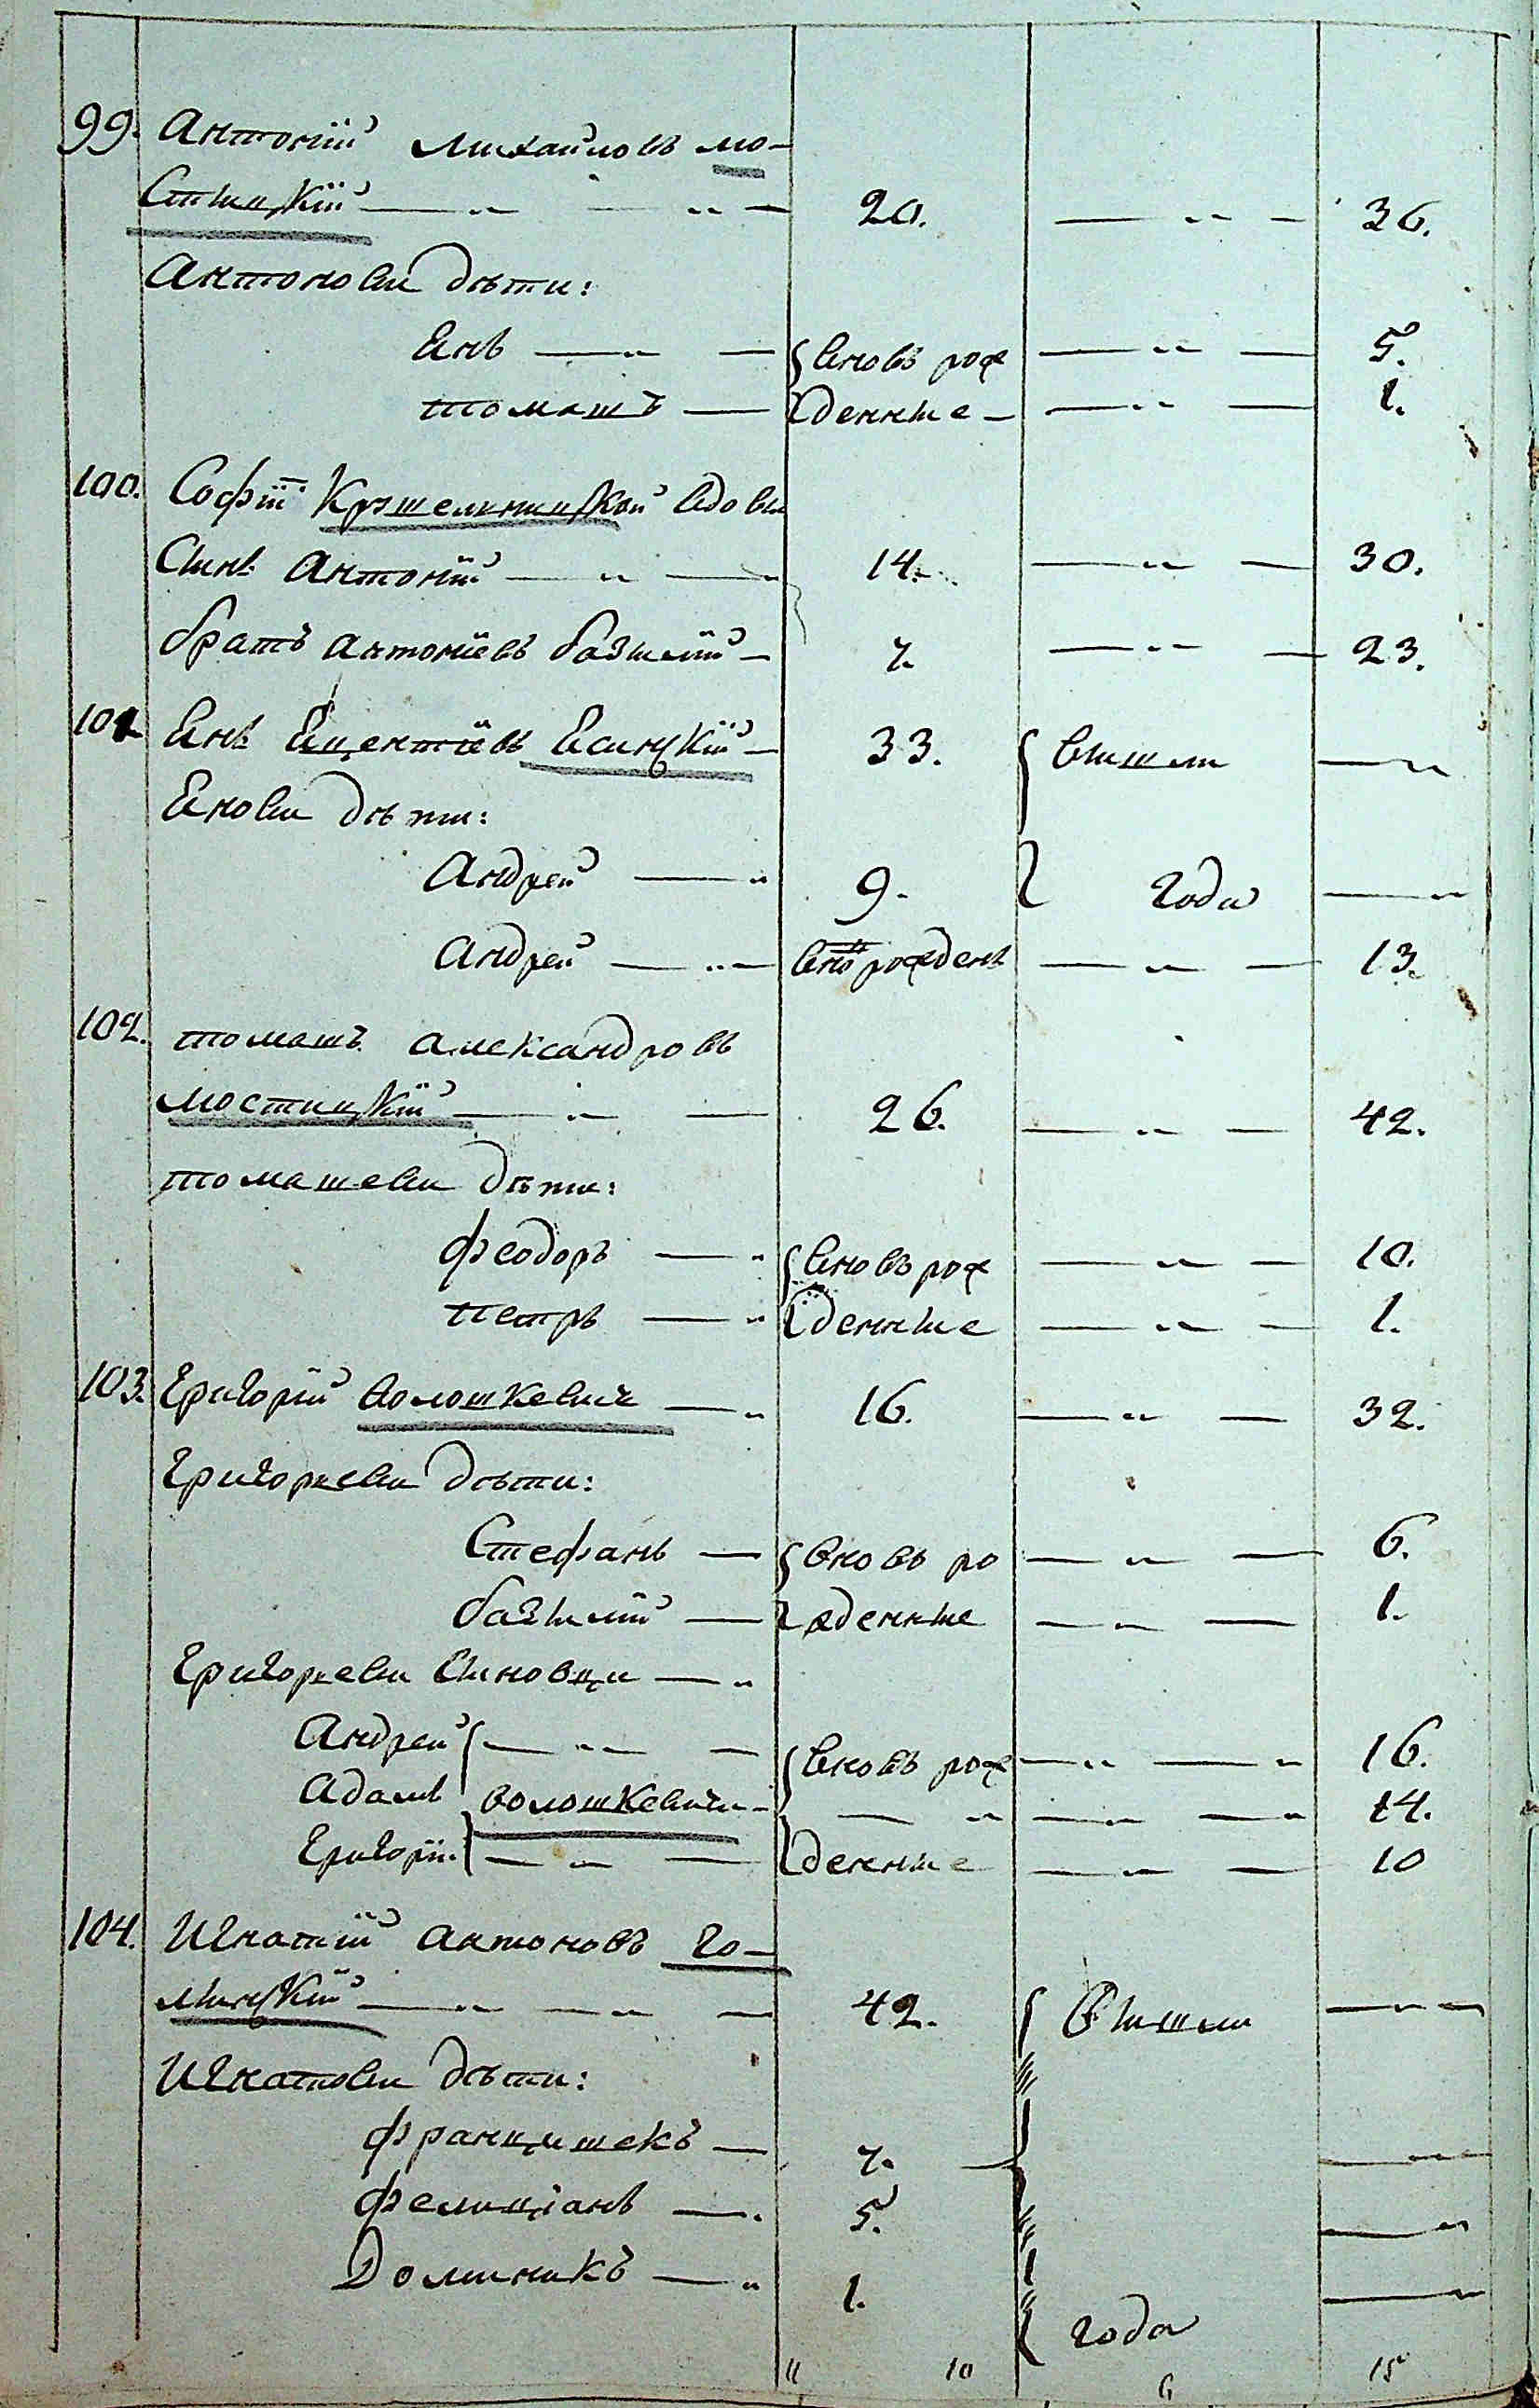 99. Антоній Михайловъ Мо-
стицкій — „ — „ — 20. — „ — 36.
Антоновы дѣти:
Янъ — „ — вновь рож — „ — 5.
Томашъ — денные — — „ — 1.
100. Софіи Крушельницкой вдовы
Сынъ Антоній — „ — 14. — „ — 30.
братъ Антоніевъ базылій — 7. — „ — 23.
101 Янъ Яцентіевъ Ясинскій — 33. вышли — „
Яновы дѣти:
Андрей — „ 9. года — „
Андрей — „ — вно рожденъ — „ — 13.
102. Томашъ Александровъ
Мостицкій — „ — 26. — „ — 42.
Томашевы дѣти:
Феодоръ — „ вновь рож — „ — 10.
Петръ — „ денные — „ — 1.
103. Григорій Волошкевичъ — „ 16. — „ — 32.
Григорьевы дѣти:
Стефанъ — вновь ро — „ — 6.
базылій — жденные — „ — 1.
Григорьевы сыновцы — „
Андрей — „ — вновь рож — „ — „ 16.
Адамъ Волошкевичи — — „ — „ — „ 14.
Григорій — „ — денные — „ — 10
104. Игнатій Антоновъ Го-
мынскій — „ — „ — 42. Вышли — „ —
Игнатовы дѣти:
Францишекъ — 7. — „ —
Фелиціанъ — . 5. — „
Доминикъ — „ 1. — „
года
11 10 6 15